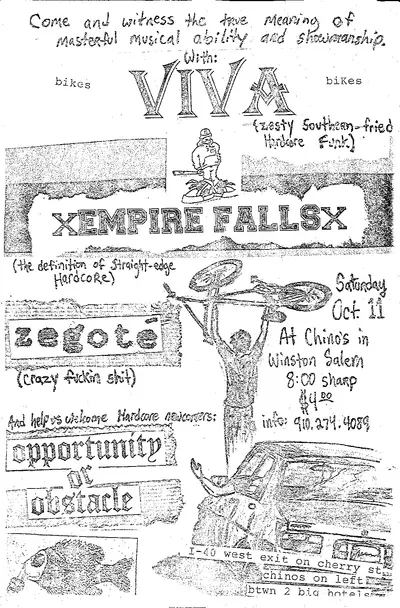 Come and witness the true meaning of
masterful musical ability and showmanship.
With:
bikes
VIVA
biKes
(zesty Southern-fried
Hardcore Funk)
xEMPIRE FALLSx
(the definition of straight-edge
HardcoRe)
Saturday
Oct. 11
zegoté
(crazy fuckin shit)
At Chino's in
Winston Salem
8:00 sharp
$4.00
info: 910.274.4089
And help us welcome Hardcore newcomers:
opportunity
or
obstacle
I-40 west exit on cherry st
chinos on left
btwn 2 big hotels